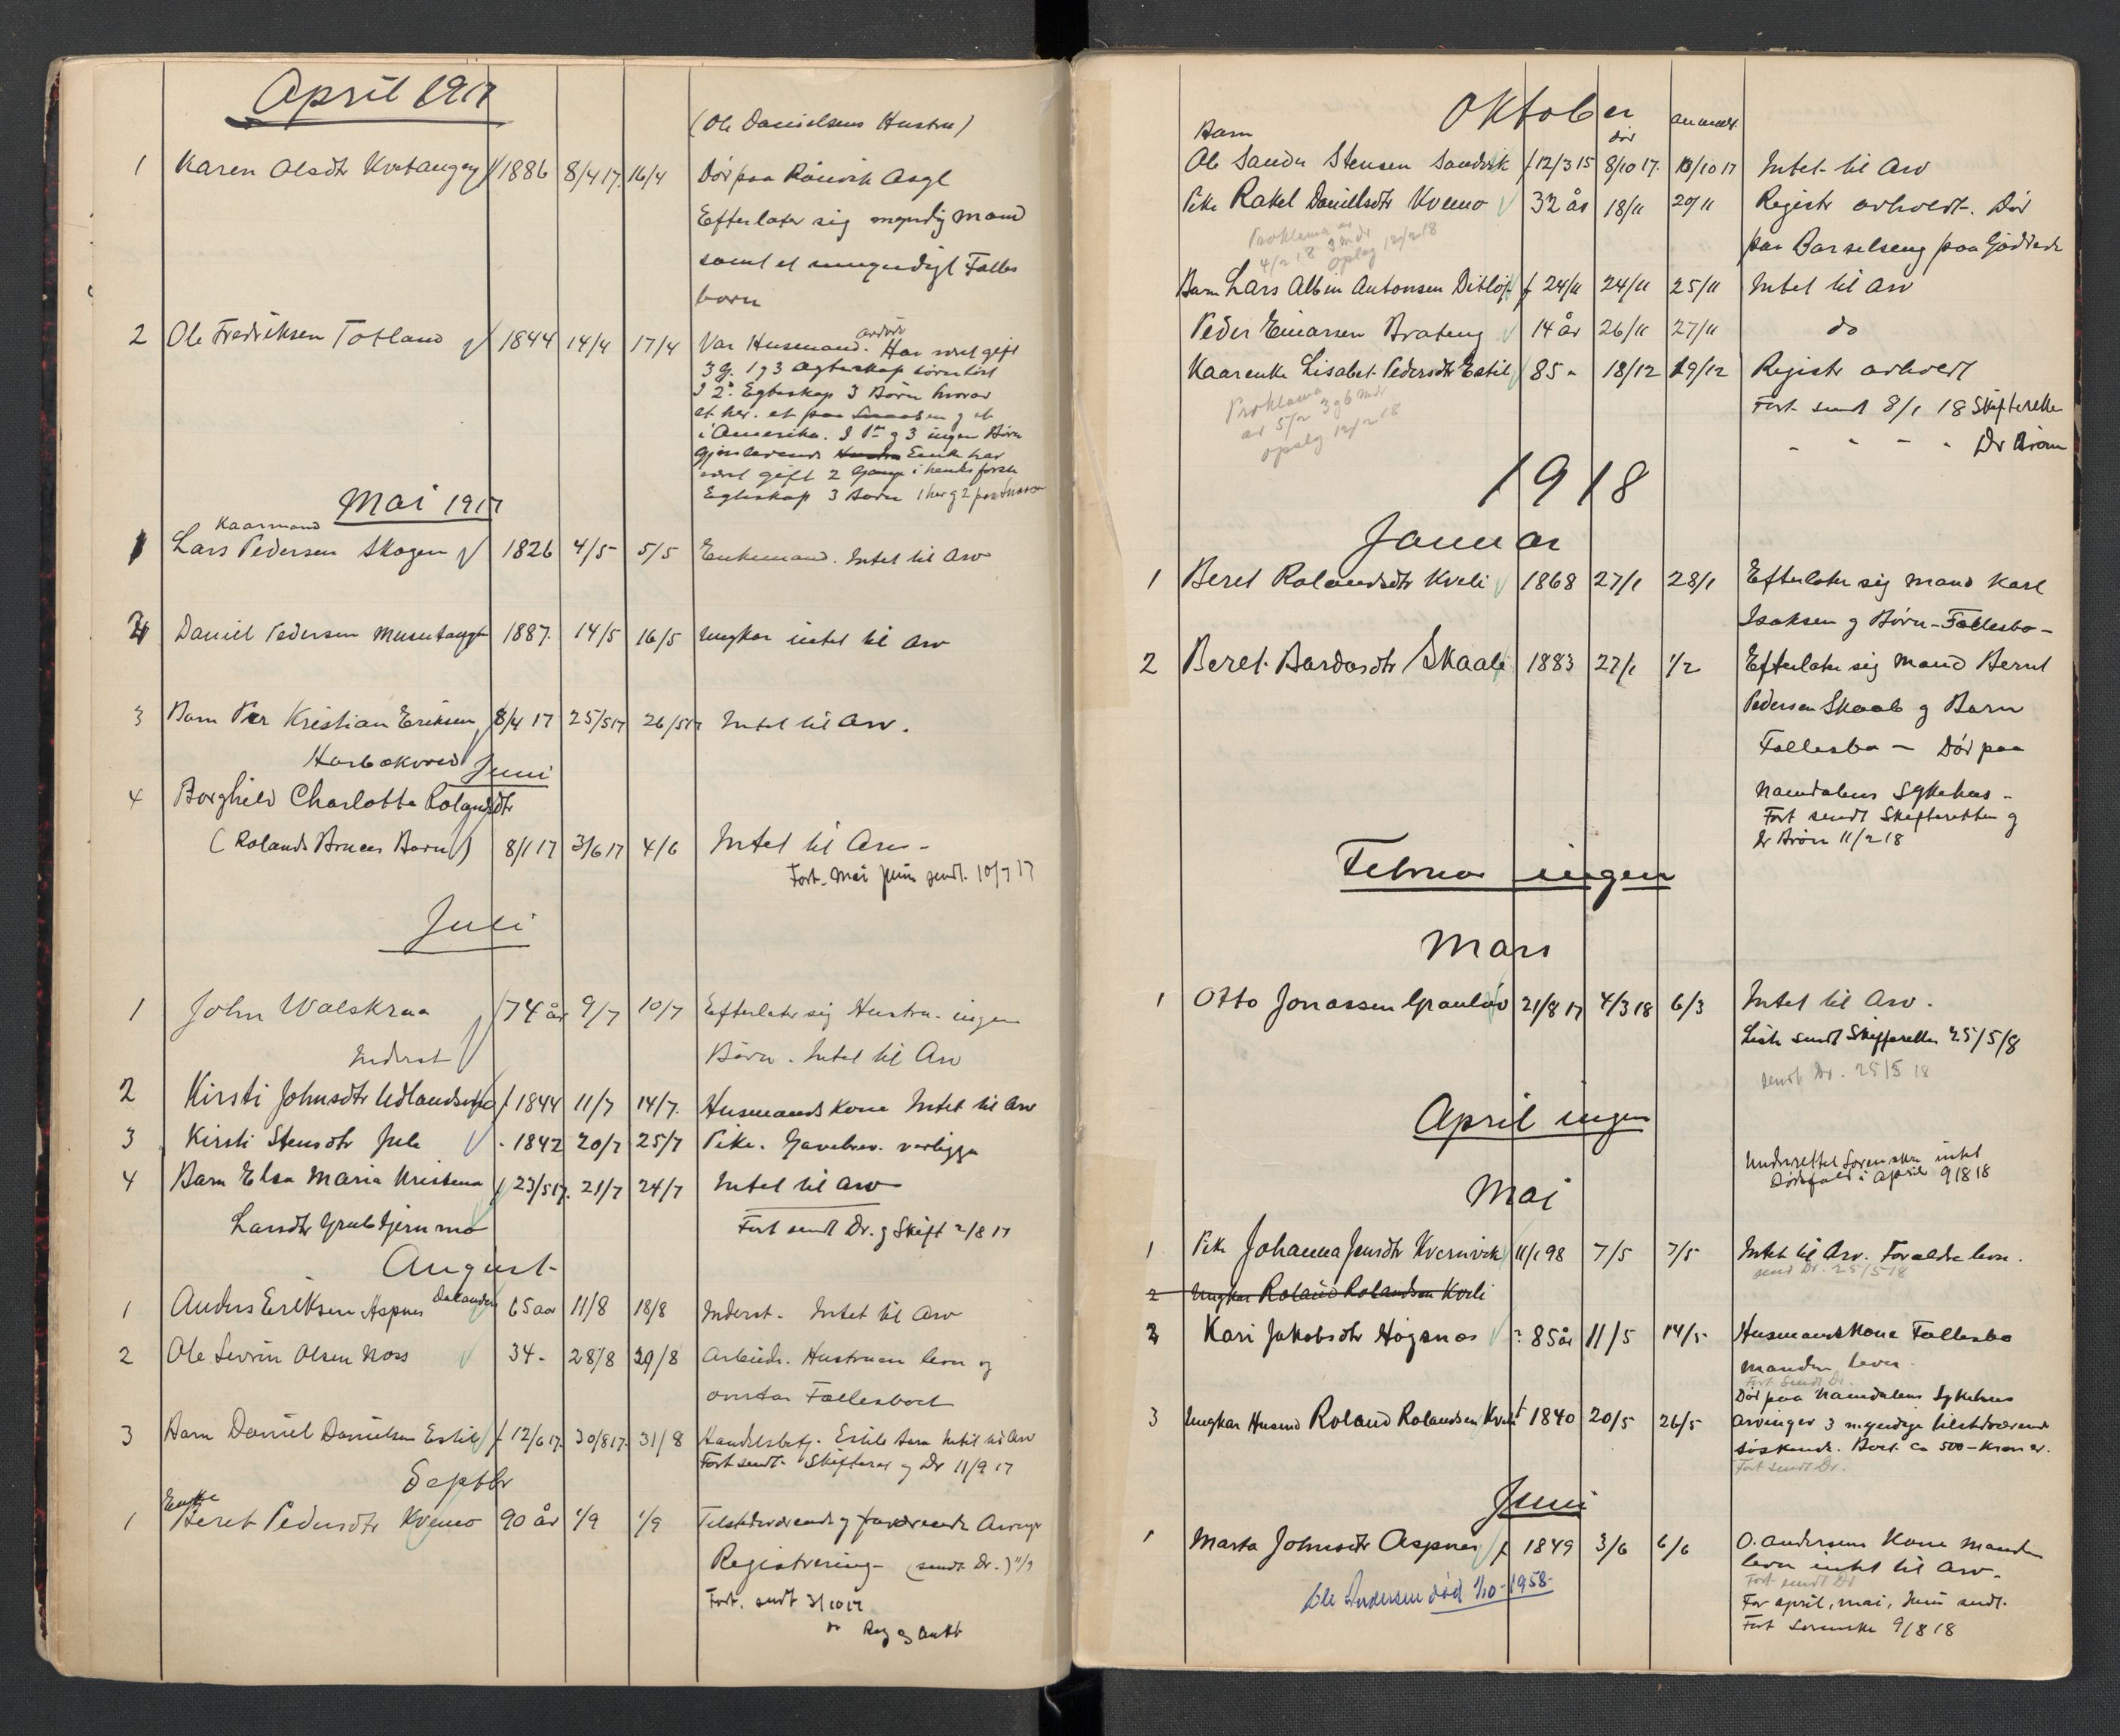 April 1917
(Ole Danielsens Hustru)
1 Karen Olsdtr Kvetangen 1886 8/4 17. 16/4 Dør paa Rönvik Asyl
Efterlater sig myndig mand
samt et umyndigt Fælles
barn
2 Ole Fredriksen Totland 1844 14/4 17/4 Var Husmand. Har vært gift
3 g. 1 g 3 Ægteskap
I 2. Egteskap 3 Børn hvorav
et her. et paa Snaasen g et
i Amerika. I 1ste g 3 ingen Børn
Gjenlevende Hustru Enke har
vært gift 2 Gange i hendes første
Egteskap 3 Børn 1 her g 2 paa Snaasa
Mai 1917
Kaarmand
1 Lars Pedersen Skogen 1826 4/5 5/5 Enkemand. Intet til Arv
2 Daniel Pedersen 1887. 14/5 16/5 Ungkar intet til Arv
3 Barn Per Kristian Eriksen 8/4 17 25/5 17 26/5 17 Intet til Arv.
Harbakvred
Juni
4 Borghild Charlotte Rolandsdtr
(Rolands Bruces Barn) 8/1 17 3/6 17 4/6 Intet til Arv-
Fort. Mai Juni sendt. 10/7 17
Juli
1 John Walskraa 74 år 9/7 10/7 Efterlater sig Hustru. ingen
Inderst Børn. Intet til Arv
2 Kirsti Johnsdtr f 1844 11/7 14/7. Husmands Kone Intet til Arv
3 Kirsti Stensdtr Jule - 1842 20/7 25/7 Pike. Gavebrev. verligga
4 Barn Elsa Maria Kristena f 23/5 17. 21/7 24/7 Intet til Arv
Larsdtr Grubtjernmo Fort sendt Dr. g Skift 2/8 17
August
1 Anders Eriksen Aspnes 65 aar 11/8 18/8 Inderst. Intet til Arv
2 Ole Sevrin Olsen Moss 34 - 28/8 29/8 Arbeider. Hustruen lever og
overtar Fællesboet
3 Barn Daniel Danielsen Estil f 12/6 17. 30/8 17. 31/8 Handelsbetj. Estils barn Intet til Arv
Fort sendt Skifteret og Dr 11/9 17
Septbr
Enke
1 Beret Pedersdtr Kvemo 90 år 1/9 1/9 Tilstedeværende g fraværende Arvinger
Registrering - (sendt Dr.) 11/9
Fort. sendt 3/10 17
Reg og Antb
Oktober
Barn dør anmeldt
Ole Sander Stensen Sandvik f 12/3 15 8/10 17. 13/10 17 Intet til Arv
Pike Rakel Danielsdtr Kvemo 32 år 18/11 20/11 Registr avholdt. Dør
paa Barselseng paa Gjødsede
Proklama av
4/2 18 3 mdr
Opslag 12/2 18
Barn Lars Albin Antonsen Ditløf f 24/11 24/11 25/11 Intet til Arv
Peder Einarsen Brateng 14 år 26/11 27/11 do
Kaarenke Lisabet Pedersdtr Estil 85 - 18/12 19/12 Registr avholdt
Proklama
av 5/2 3 g 6 mdr
opslag 12/2 18
Fort sendt 8/1 18 Skifteretten
- - - - Dr Brøm
1918
Januar
1 Beret Rolandsdtr Kveli 1868 27/1 28/1 Efterlater sig mand Karl
Isaksen g Børn - Fællesbo -
2 Beret Bardosdtr Skaale 1883 27/1 1/2 Efterlater sig Mand Bernt
Pedersen Skaale g Barn
Fællesbo - Dør paa
Namdalens Sykehus -
Fort sendt Skifteretten g
Dr Brøm 11/2 18
Februar ingen
Mars
1 Otto Jonassen 21/8 17 4/3 18 6/3 Intet til Arv.
Liste sendt Skifteretten 25/5/8
sendt Dr. 25/5 18
April ingen
Underrettet Sorenskr intet
Dødsfald i April 9/8 18
Mai
1 Pike Johanna Jensdtr Kvernvik 11/1 98 7/5 7/5 Intet til Arv. Forældre lever.
send Dr. 25/5 18
2 Ungkar Roland Rolandsen Kveli
2 Kari Jakobsdtr Høgsnæs - 85 år 11/5 14/5 Husmandskone Fællesbo
Manden lever.
Fort sendt Dr.
Dør paa Namdalens Sykehus
3 Ungkar Husmd Roland Rolandsen Kveli 1840 20/5 26/5 Arvinger 3 myndige tilstedeværende
søskende. Boet ca 500 - Kroner.
Fort sendt Dr.
Juni
1 Marta Johnsdtr Aspnes f 1849 3/6 6/6 O. Andersens Kone Manden
lever intet til Arv.
Fort sendt Dr
Ole Andersen død 1/10 - 1958.
For april, mai, Juni sendt.
Fort Sorenskr 9/8 18